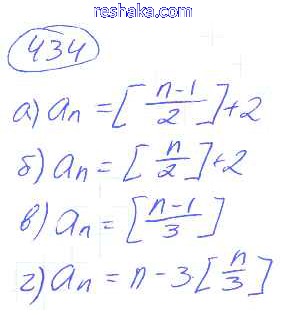 reshaka.com
434
а) aₙ = [(n-1)/2] + 2
б) aₙ = [n/2] + 2
в) aₙ = [(n-1)/3]
г) aₙ = n - 3 · [n/3]